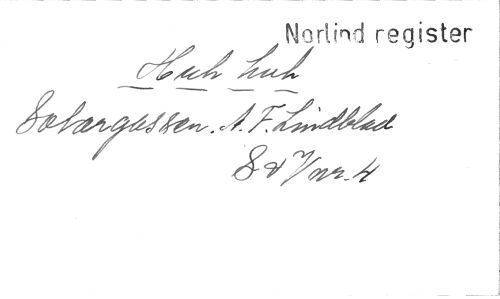 Norlind register
Huh huh
Sotargossen. A. F. Lindblad
S & V nr. 4